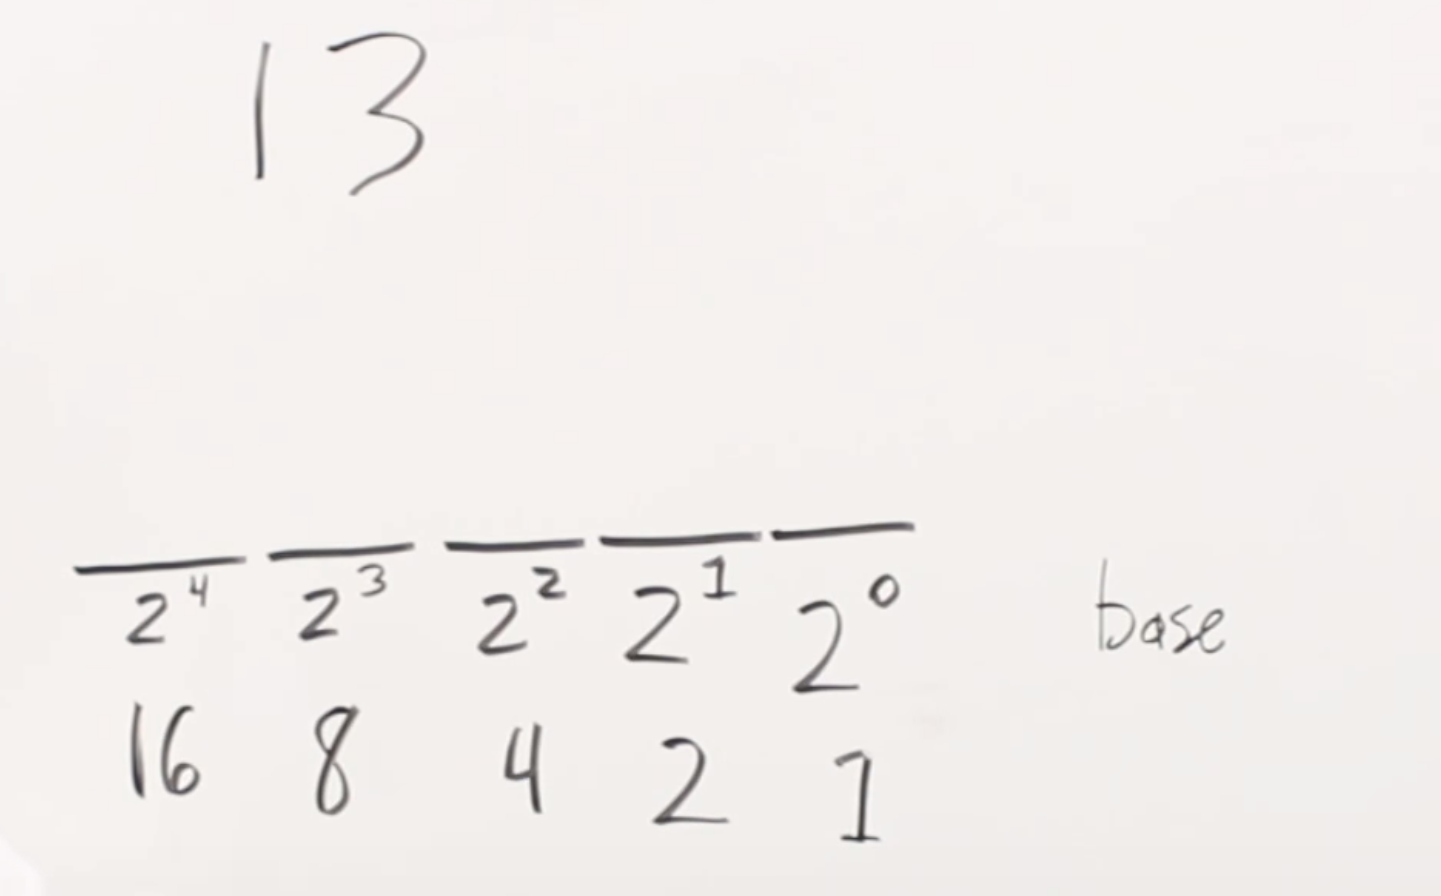 13
2⁴ 2³ 2² 2¹ 2⁰ base
16 8 4 2 1